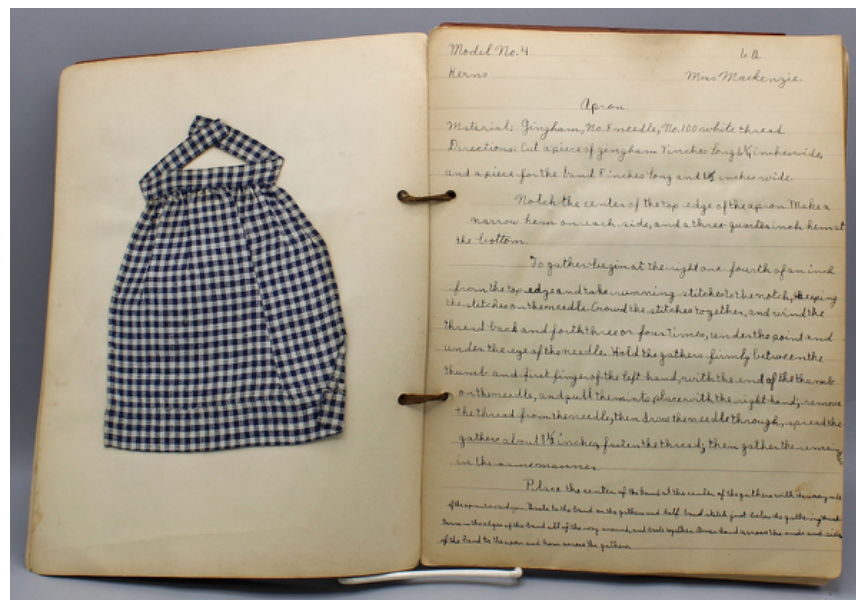 Model No. 4. 6 B
Kerns Miss Mackenzie.
Apron
Material: Gingham, No. 8 needle, No. 100 white thread
Directions: Cut a piece of gingham 7 inches long 6½ inches wide,
and a piece for the band 8 inches long and 1½ inches wide.
Notch the center of the top edge of the apron. Make a
narrow hem on each side, and a three-quarter inch hem at
the bottom.
To gather begin at the right one-fourth of an inch
from the top edge and take running stitches to the notch, keeping
the stitches on the needle. Crowd the stitches together, and wind the
thread back and forth three or four times, under the point and
under the eye of the needle. Hold the gathers firmly between the
thumb and first finger of the left hand, with the end of the thumb
on the needle, and pull them into place with the right hand; remove
the thread from the needle, then draw the needle through, spread the
gathers about 1½ inches, fasten the thread; then gather the remain
in the same manner.
Place the center of the band at the center of the gathers with the wrong side
of the apron toward you. Baste to the band on the gathers and half back stitch just below the gathering thread
Turn in the edges of the band all of the way around, and baste together. Overhand across the ends and side
of the band to the apron and hem across the gathers.